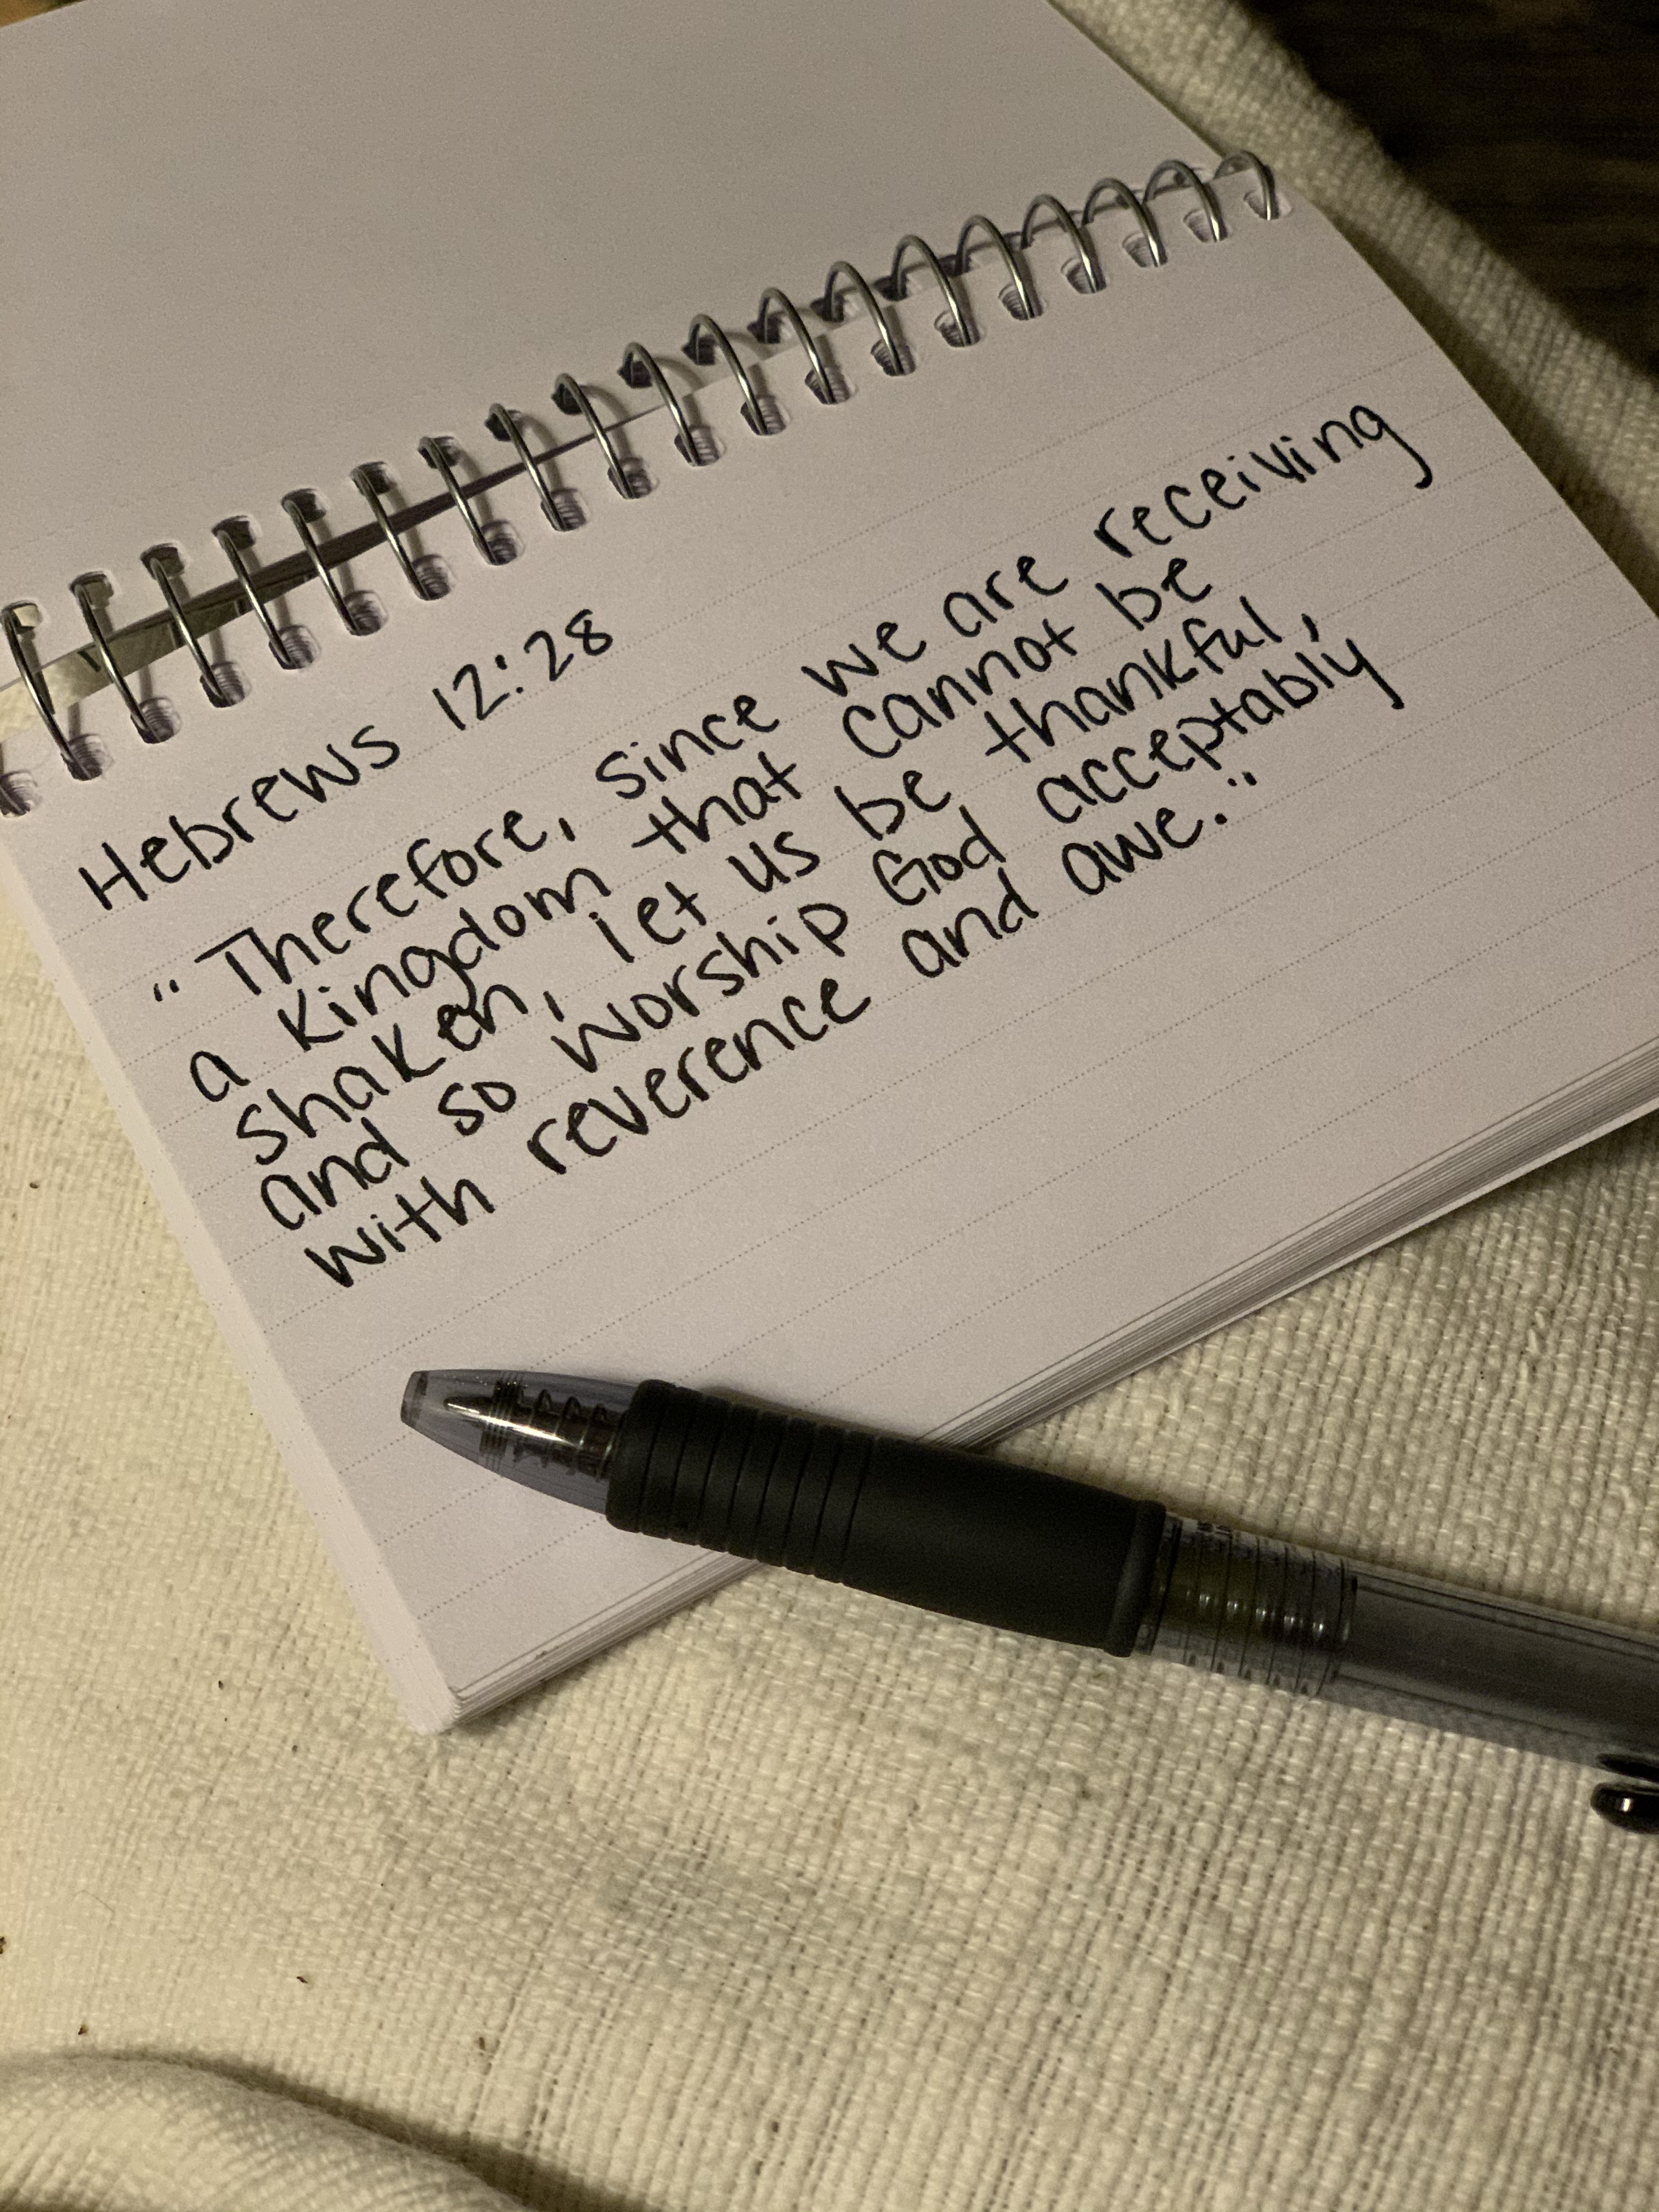 Hebrews 12:28
"Therefore, since we are receiving
a kingdom that cannot be
shaken, let us be thankful,
and so worship God acceptably
with reverence and awe."